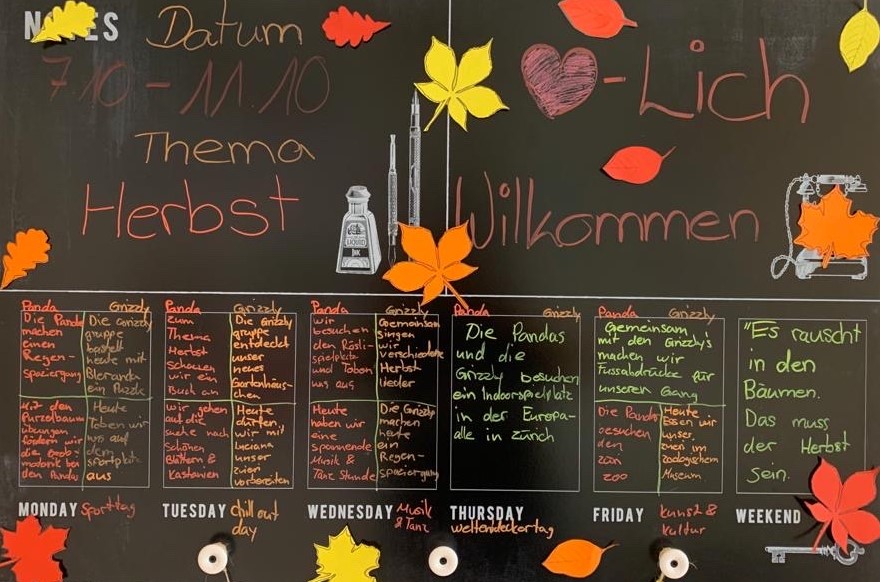 NOTES
Datum
7.10 - 11.10
Thema
Herbst
-Lich
Willkommen
LIQUID
INK
Panda
Die Panda
machen
einen
Regen-
spaziergang
Grizzly
Die Grizzly
gruppe
bastelt
heute mit
ein Puzzle
Mit den
Purzelbaum
übungen
fördern wir
die Grob-
motorik bei
den Pandas
Heute
toben wir
uns auf
dem
sportplatz
aus
MONDAY Sporttag
Panda
zum
Thema
Herbst
Schauen
wir ein
Buch an
Grizzly
Die Grizzly
gruppe
entdeckt
unser
neues
Gartenhäus-
chen
wir gehen
auf die
suche nach
Schönen
Blättern &
Kastanien
Heute
dürfen
wir mit
Luciana
unser
zvieri
vorbereiten
TUESDAY chill out
day
Panda
wir
besuchen
den Rösli-
spielplatz
und Toben
uns aus
Grizzly
Gemeinsam
singen
wir
verschiedene
Herbst
lieder
Heute
haben wir
eine
spannende
Musik &
Tanz Stunde
Die Grizzly
machen
heute
ein
Regen-
spaziergang
WEDNESDAY Musik
& Tanz
Panda
Grizzly
Die Pandas
und die
Grizzly besuchen
ein Indoorspielplatz
in der Europa-
alle in Zürich
THURSDAY
weltendeckertag
Panda
Grizzly
Gemeinsam
mit den Grizzly's
machen wir
Fussabdrücke für
unseren Gang
Die Pandas
besuchen
den
züri
zoo
Heute
Essen wir
unser
zvieri im
zoologischem
Museum
FRIDAY Kunst &
Kultur
"Es rauscht
in den
Bäumen.
Das muss
der Herbst
sein.
WEEKEND